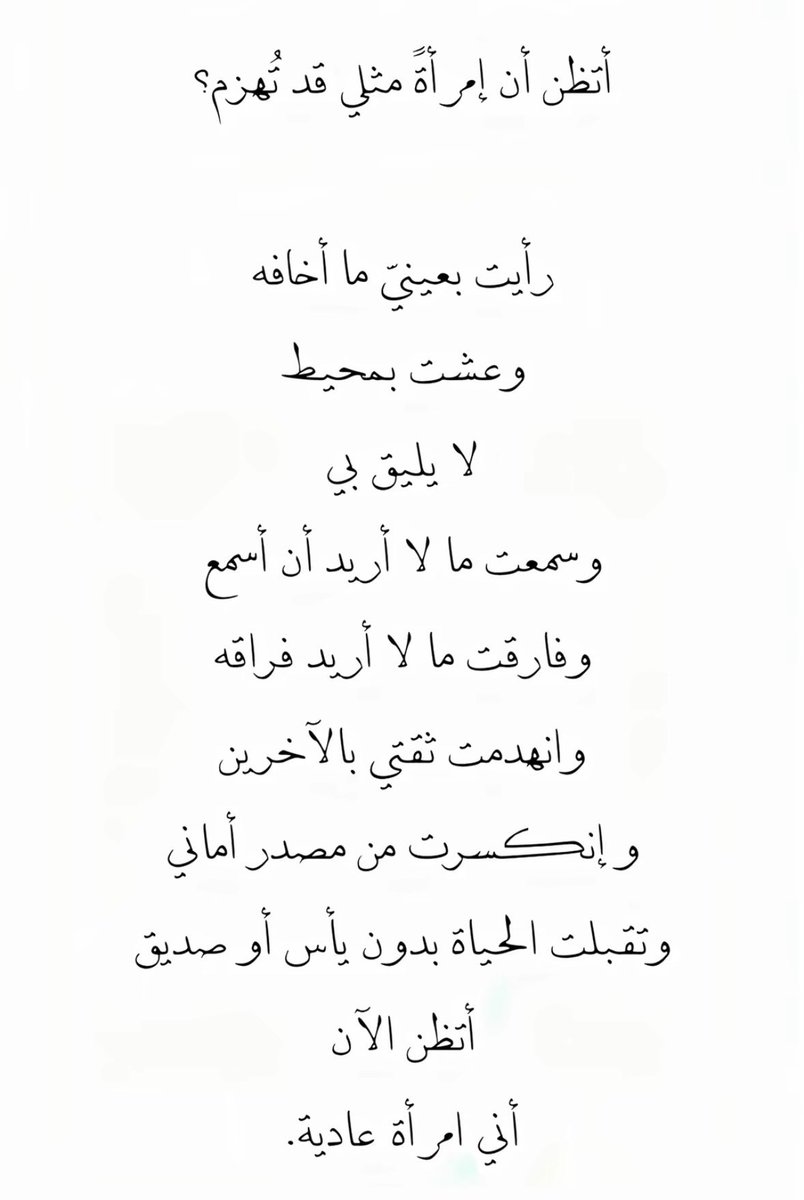 أتظن أن إمرأةً مثلي قد تُهزم؟
رأيت بعينيّ ما أخافه
وعشت بمحيط
لا يليق بي
وسمعت ما لا أريد أن أسمع
وفارقت ما لا أريد فراقه
وانهدمت ثقتي بالآخرين
وإنكسرت من مصدر أماني
وتقبلت الحياة بدون يأس أو صديق
أتظن الآن
أني امرأة عادية.